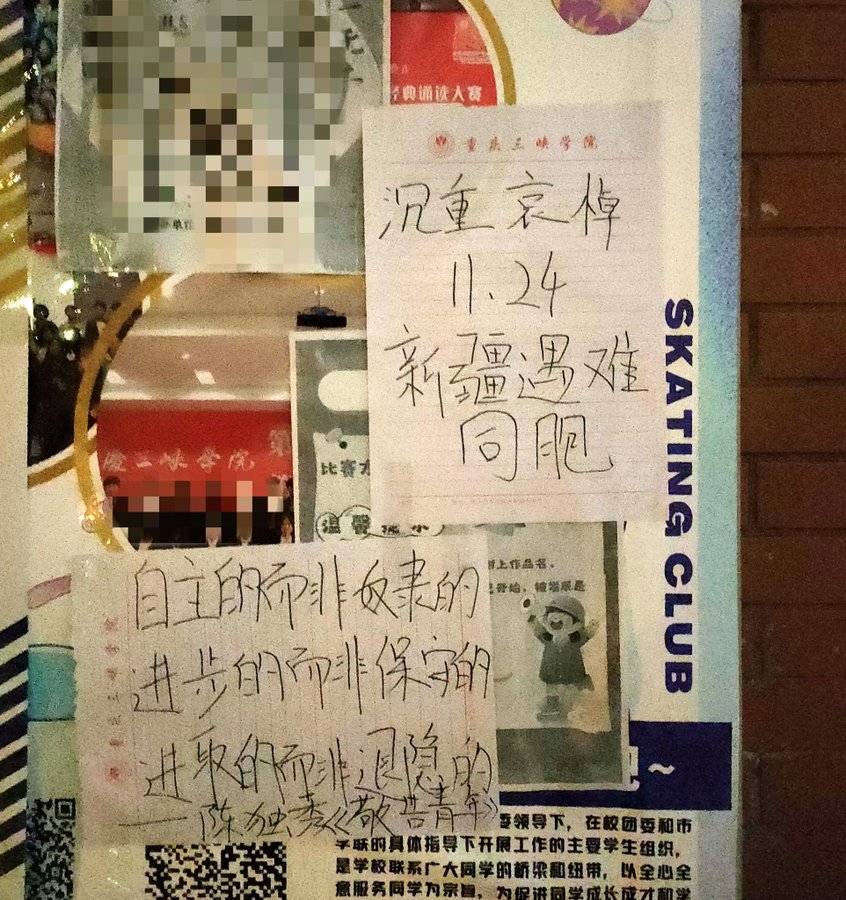 经典诵读大赛
重庆三峡学院
沉重哀悼
11.24
新疆遇难
同胞
SKATING CLUB
庆三峡学院 第
比赛
温馨提示
上作品名。
开始,
自主的而非奴隶的
进步的而非保守的
进取的而非退隐的
——陈独秀《敬告青年》
重庆三峡学院
~
委领导下,在校团委和市
学联的具体指导下开展工作的主要学生组织,
是学校联系广大同学的桥梁和纽带,以全心全
意服务同学为宗旨,为促进同学成长成才和学